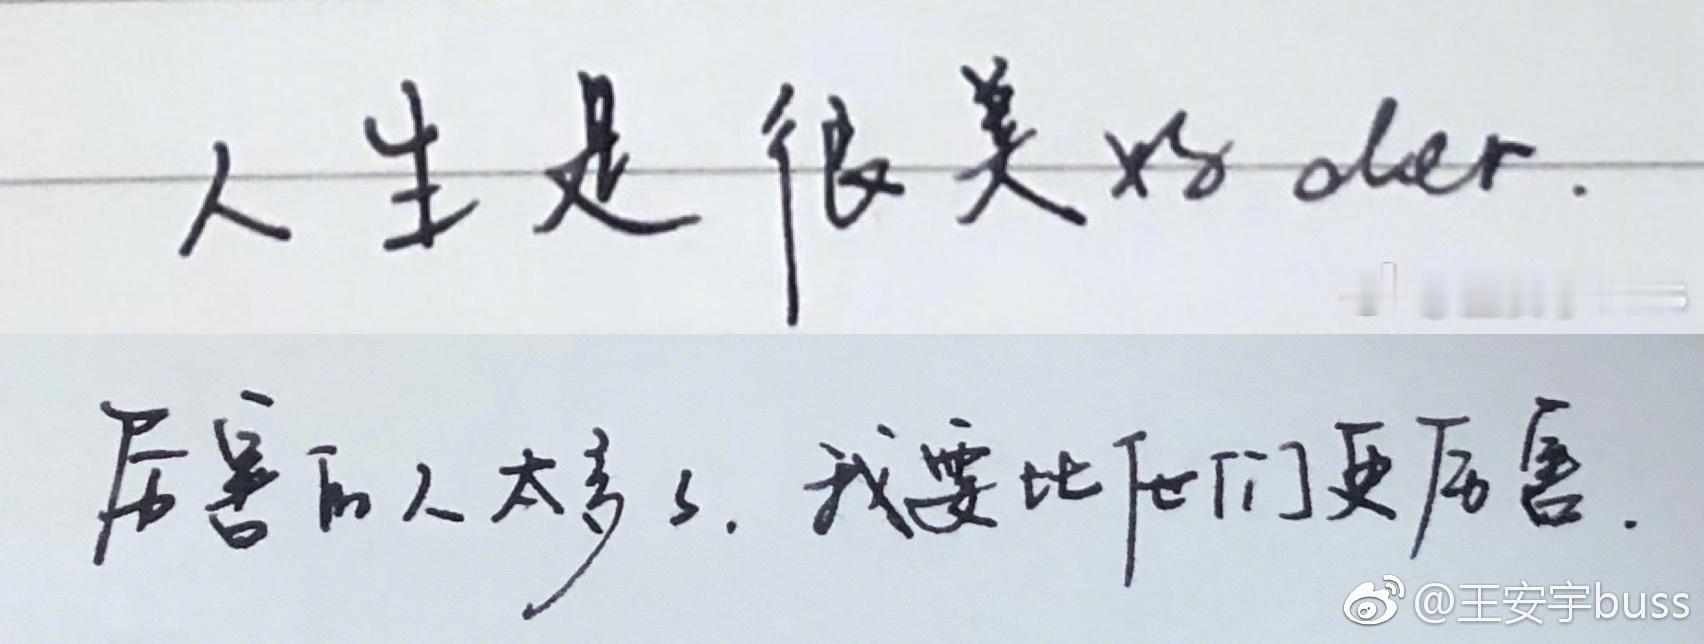 人生是很美好der.
厉害的人太多了.我要比他们更厉害.
@王安宇buss